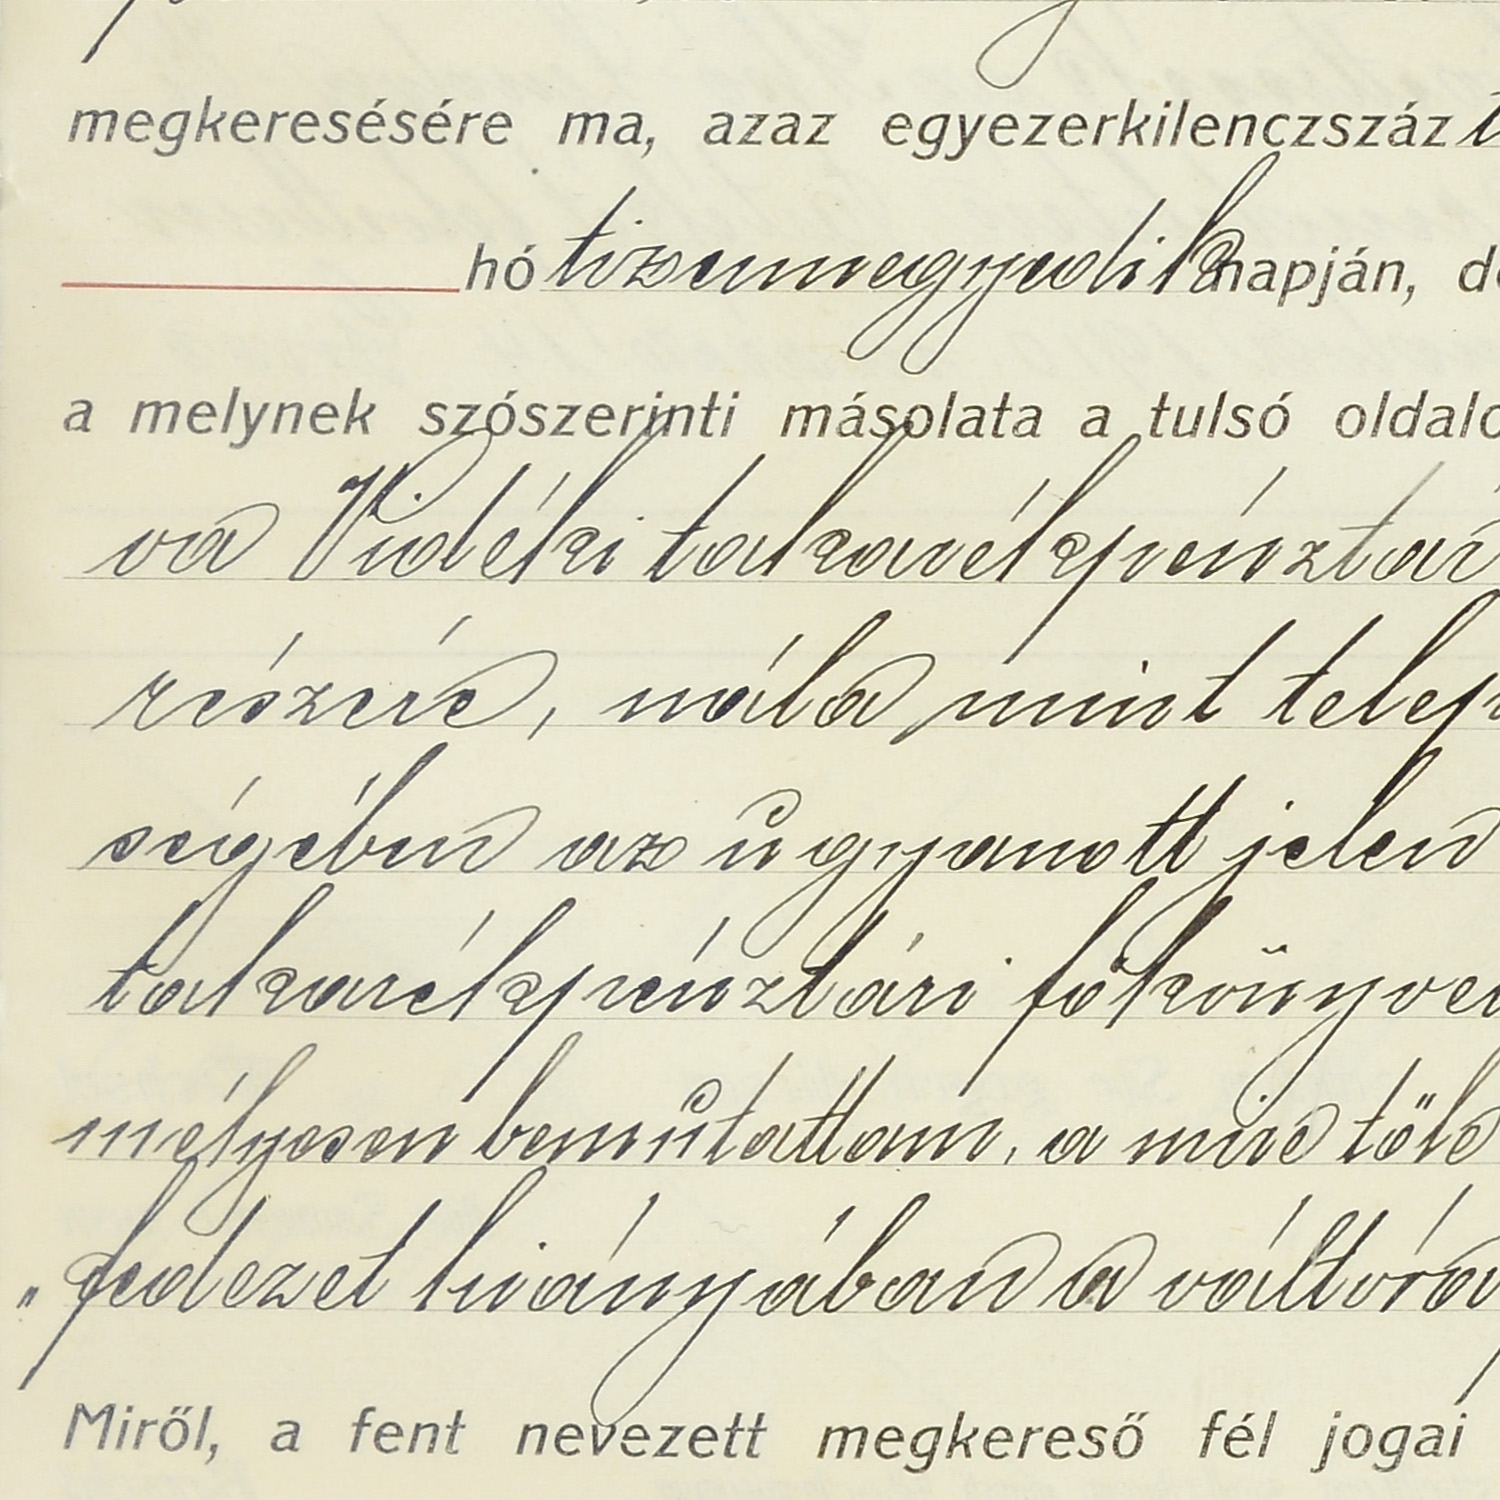 megkeresésére ma, azaz egyezerkilenczszáz
hó tizennegyedik napján, de
a melynek szószerinti másolata a tulsó oldalo
va Vidéki takarékpénztár
részére, nála mint telep
ségében az ugyanott jelen
takarékpénztári főkönyve
mélyesen bemutattam, a mire tőle
„fedezet hiányában a váltóra
Miről, a fent nevezett megkereső fél jogai